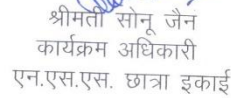 श्रीमती सोनू जैन
कार्यक्रम अधिकारी
एन.एस.एस. छात्रा इकाई